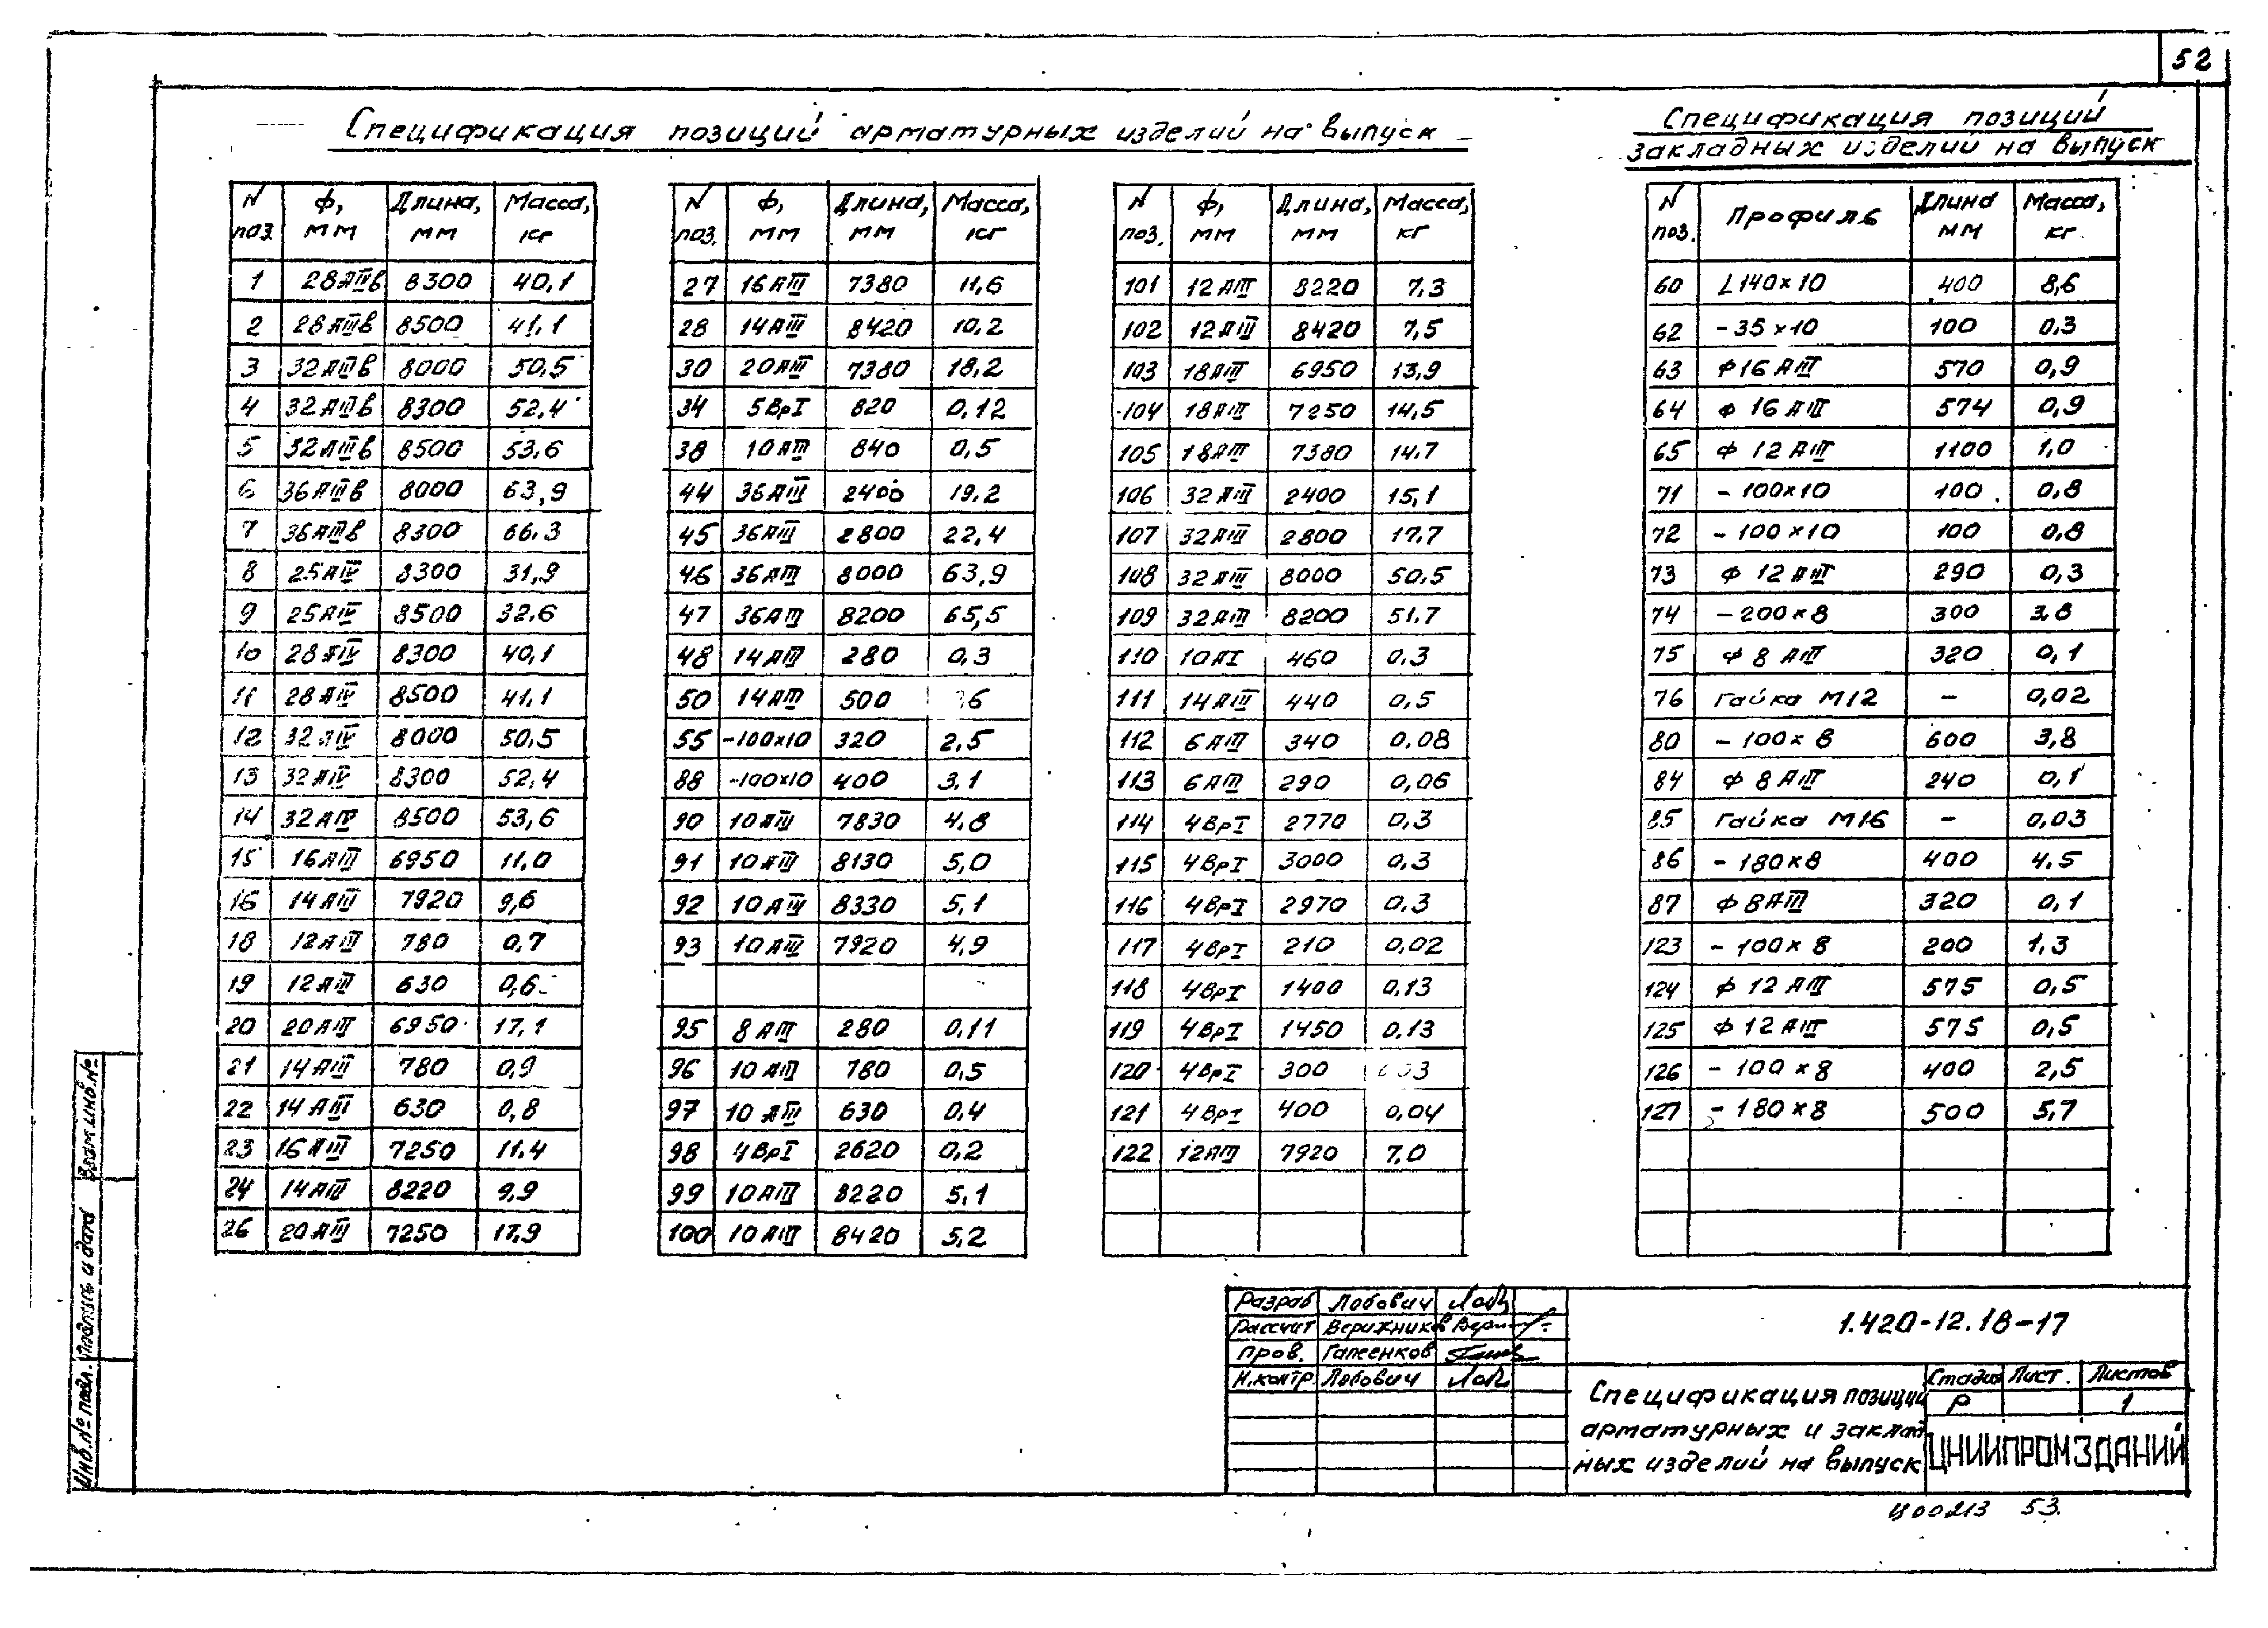 52
Спецификация позиций арматурных изделий на выпуск
Спецификация позиций
закладных изделий на выпуск
N поз. Ф, мм Длина, мм Масса, кг
1 28АIIIв 8300 40,1
2 28АIIIв 8500 41,1
3 32АIIIв 8000 50,5
4 32АIIIв 8300 52,4
5 32АIIIв 8500 53,6
6 36АIIIв 8000 63,9
7 36АIIIв 8300 66,3
8 25АIV 8300 31,9
9 25АIV 8500 32,6
10 28АIV 8300 40,1
11 28АIV 8500 41,1
12 32АIV 8000 50,5
13 32АIV 8300 52,4
14 32АIV 8500 53,6
15 16АIII 6950 11,0
16 14АIII 7920 9,6
18 12АIII 780 0,7
19 12АIII 630 0,6
20 20АIII 6950 17,1
21 14АIII 780 0,9
22 14АIII 630 0,8
23 16АIII 7250 11,4
24 14АIII 8220 9,9
26 20АIII 7250 17,9
N поз. Ф, мм Длина, мм Масса, кг
27 16АIII 7380 11,6
28 14АIII 8420 10,2
30 20АIII 7380 18,2
34 5ВрI 820 0,12
38 10АIII 840 0,5
44 36АIII 2400 19,2
45 36АIII 2800 22,4
46 36АIII 8000 63,9
47 36АIII 8200 65,5
48 14АIII 280 0,3
50 14АIII 500
55 -100х10 320 2,5
88 -100х10 400 3,1
90 10АIII 7830 4,8
91 10АIII 8130 5,0
92 10АIII 8330 5,1
93 10АIII 7920 4,9
95 8АIII 280 0,11
96 10АIII 780 0,5
97 10АIII 630 0,4
98 4ВрI 2620 0,2
99 10АIII 8220 5,1
100 10АIII 8420 5,2
N поз. Ф, мм Длина, мм Масса, кг
101 12АIII 8220 7,3
102 12АIII 8420 7,5
103 18АIII 6950 13,9
104 18АIII 7250 14,5
105 18АIII 7380 14,7
106 32АIII 2400 15,1
107 32АIII 2800 17,7
108 32АIII 8000 50,5
109 32АIII 8200 51,7
110 10АI 460 0,3
111 14АIII 440 0,5
112 6АIII 340 0,08
113 6АIII 290 0,06
114 4ВрI 2770 0,3
115 4ВрI 3000 0,3
116 4ВрI 2970 0,3
117 4ВрI 210 0,02
118 4ВрI 1400 0,13
119 4ВрI 1450 0,13
120 4ВрI 300
121 4ВрI 400 0,04
122 12АIII 7920 7,0
N поз. Профиль Длина мм Масса, кг
60 L140х10 400 8,6
62 -35х10 100 0,3
63 Ф16АIII 570 0,9
64 Ф16АIII 574 0,9
65 Ф12АIII 1100 1,0
71 -100х10 100 0,8
72 -100х10 100 0,8
73 Ф12АIII 290 0,3
74 -200х8 300 3,8
75 Ф8АIII 320 0,1
76 Гайка М12 - 0,02
80 -100х8 600 3,8
84 Ф8АIII 240 0,1
85 Гайка М16 - 0,03
86 -180х8 400 4,5
87 Ф8АIII 320 0,1
123 -100х8 200 1,3
124 Ф12АIII 575 0,5
125 Ф12АIII 575 0,5
126 -100х8 400 2,5
127 -180х8 500 5,7
Взам.инв.№
Подпись и дата
Инв.№ подл.
Разраб Лобович
Рассчит Верижников
Пров. Гапеенков
Н.контр. Лобович
1.420-12.18-17
Спецификация позиций
арматурных и заклад
ных изделий на выпуск
Стадия Лист. Листов
Р 1
ЦНИИПРОМЗДАНИЙ
Ц00213 53